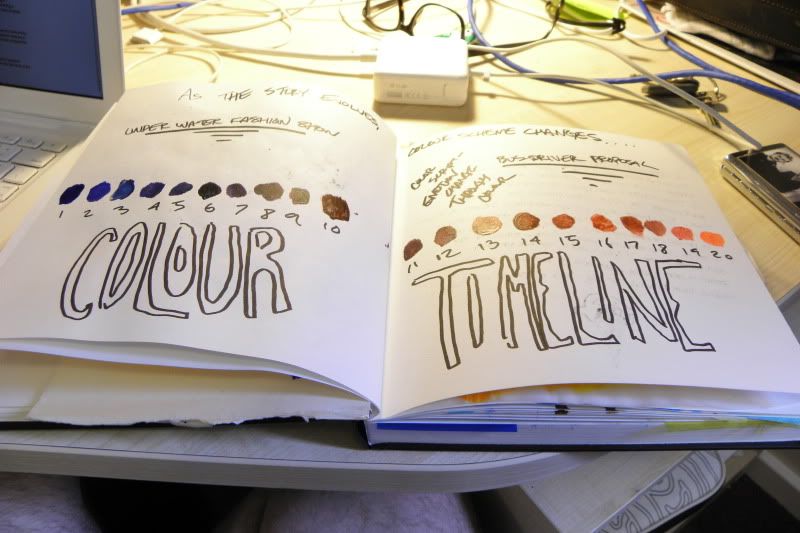 AS THE STORY EVOLVES
UNDER WATER FASHION SHOW
1 2 3 4 5 6 7 8 9 10
COLOUR
COLOUR SCHEME CHANGES....
BUS DRIVER PROPOSAL
COLOUR
SCRIPT
EMOTION
CHANGE
THROUGH
COLOUR
11 12 13 14 15 16 17 18 19 20
TIMELINE